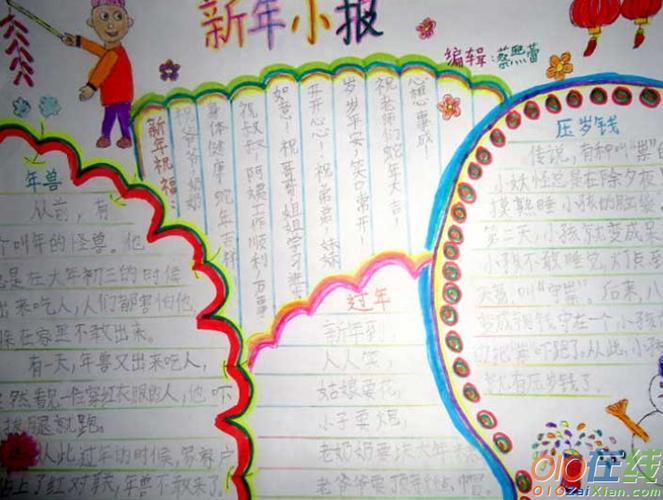 新年小报
编辑:蔡熙蕾
新年祝福:
祝爷爷、奶奶
身体健康,蛇年吉祥
祝叔叔、阿姨工作顺利,万事
如意!祝哥哥、姐姐学习进步
开开心心!祝弟弟、妹妹
岁岁平安、笑口常开!
祝老师们蛇年大吉!
心想事成!
年兽
从前,有
个叫年的怪兽。他
总是在大年初三的时候
出来吃人,人们都害怕他,
躲在家里不敢出来。
有一天,年兽又出来吃人,
突然看见一位穿红衣服的人,他吓
拔腿就跑。
从此过年的时候,家家户
贴上了红对联,年兽不敢来了。
过年
新年到,
人人笑,
姑娘要花,
小子要炮,
老奶奶要块大年糕
老爷爷要顶新毡帽
压岁钱
传说,有种叫“祟”的
小妖怪总是在除夕夜
摸熟睡小孩的脑袋
第二天,小孩就变成呆
小孩不敢睡觉,灯点至
天亮,叫“守祟”。后来,八
变成铜钱守在一个小孩
把祟吓跑了。从此,小孩
就有压岁钱了。
010在线
010ZaiXian.com